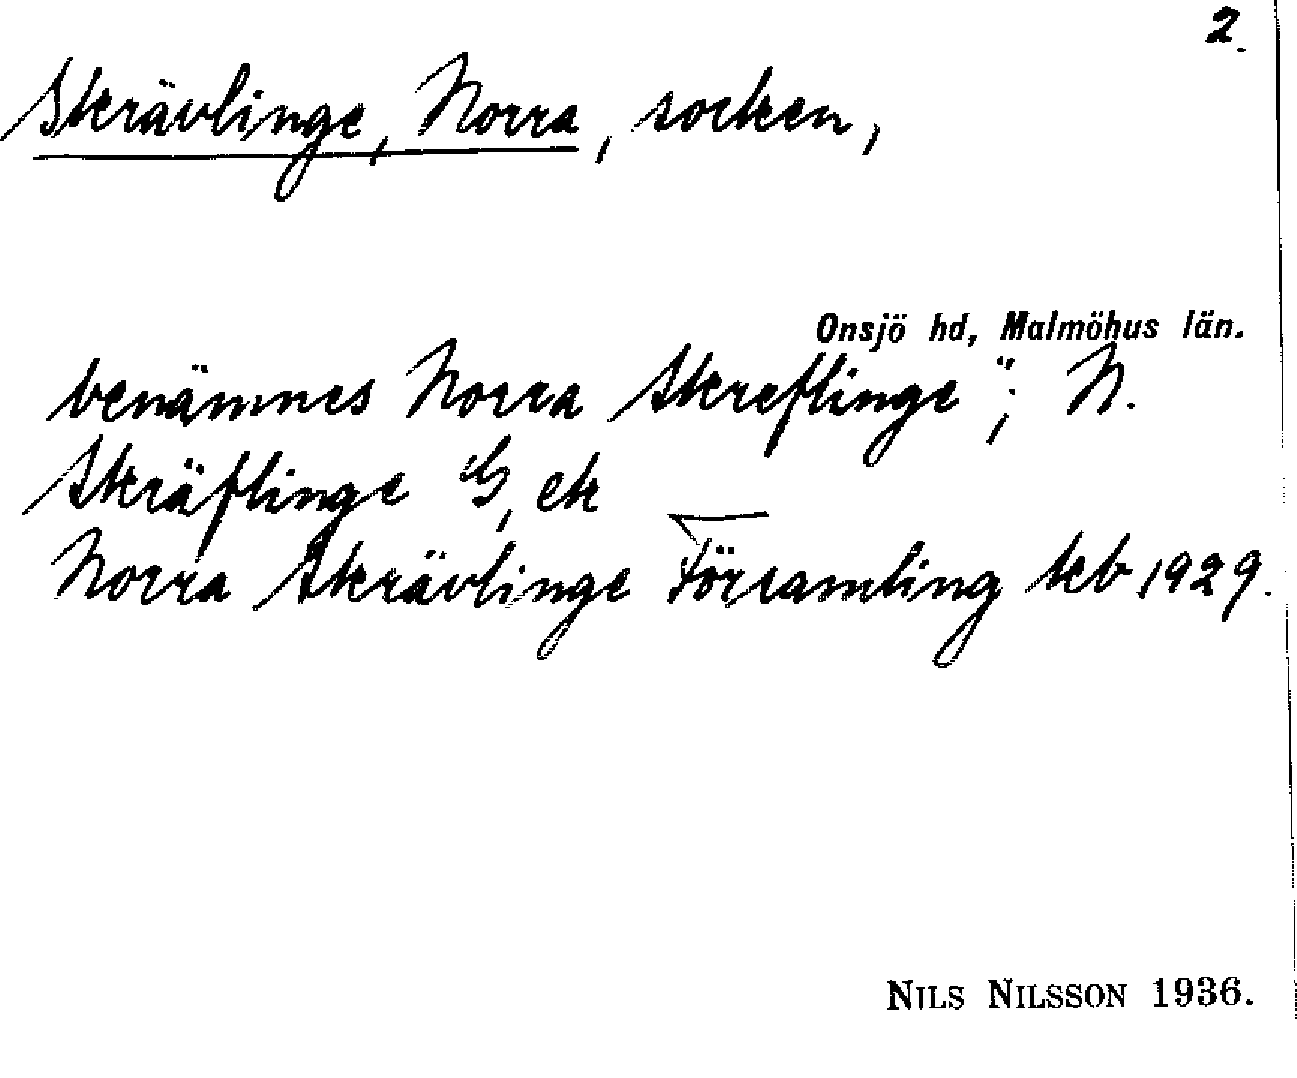 2.
Skrävlinge, Norra, socken,
Onsjö hd, Malmöhus län.
benämnes Norra Skreflinge"; N.
Skräflinge G, ek
Norra Skrävlinge Församling skb 1929.
NILS NILSSON 1936.